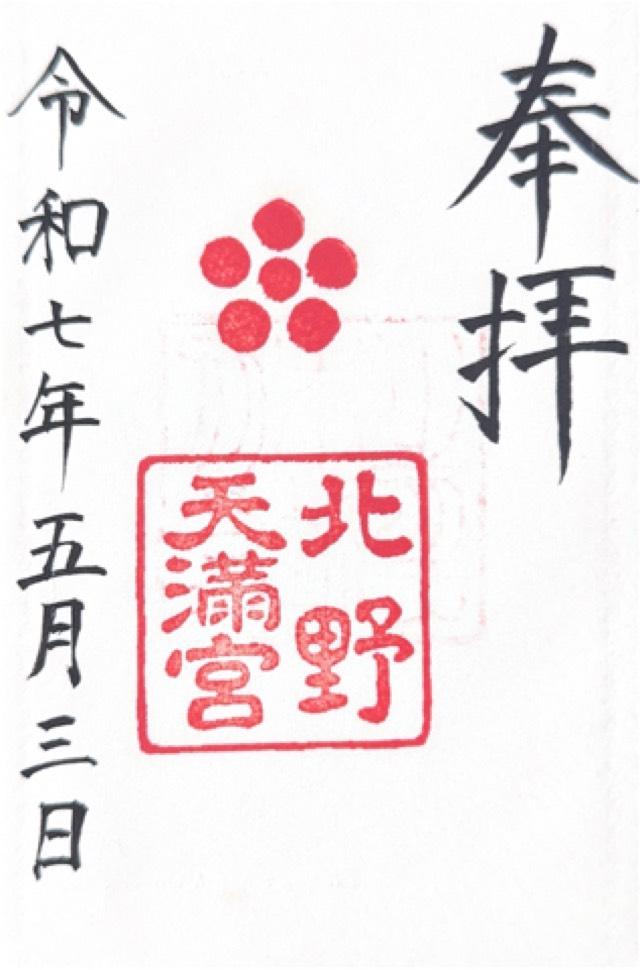 奉拝
北野
天満宮
令和七年五月三日